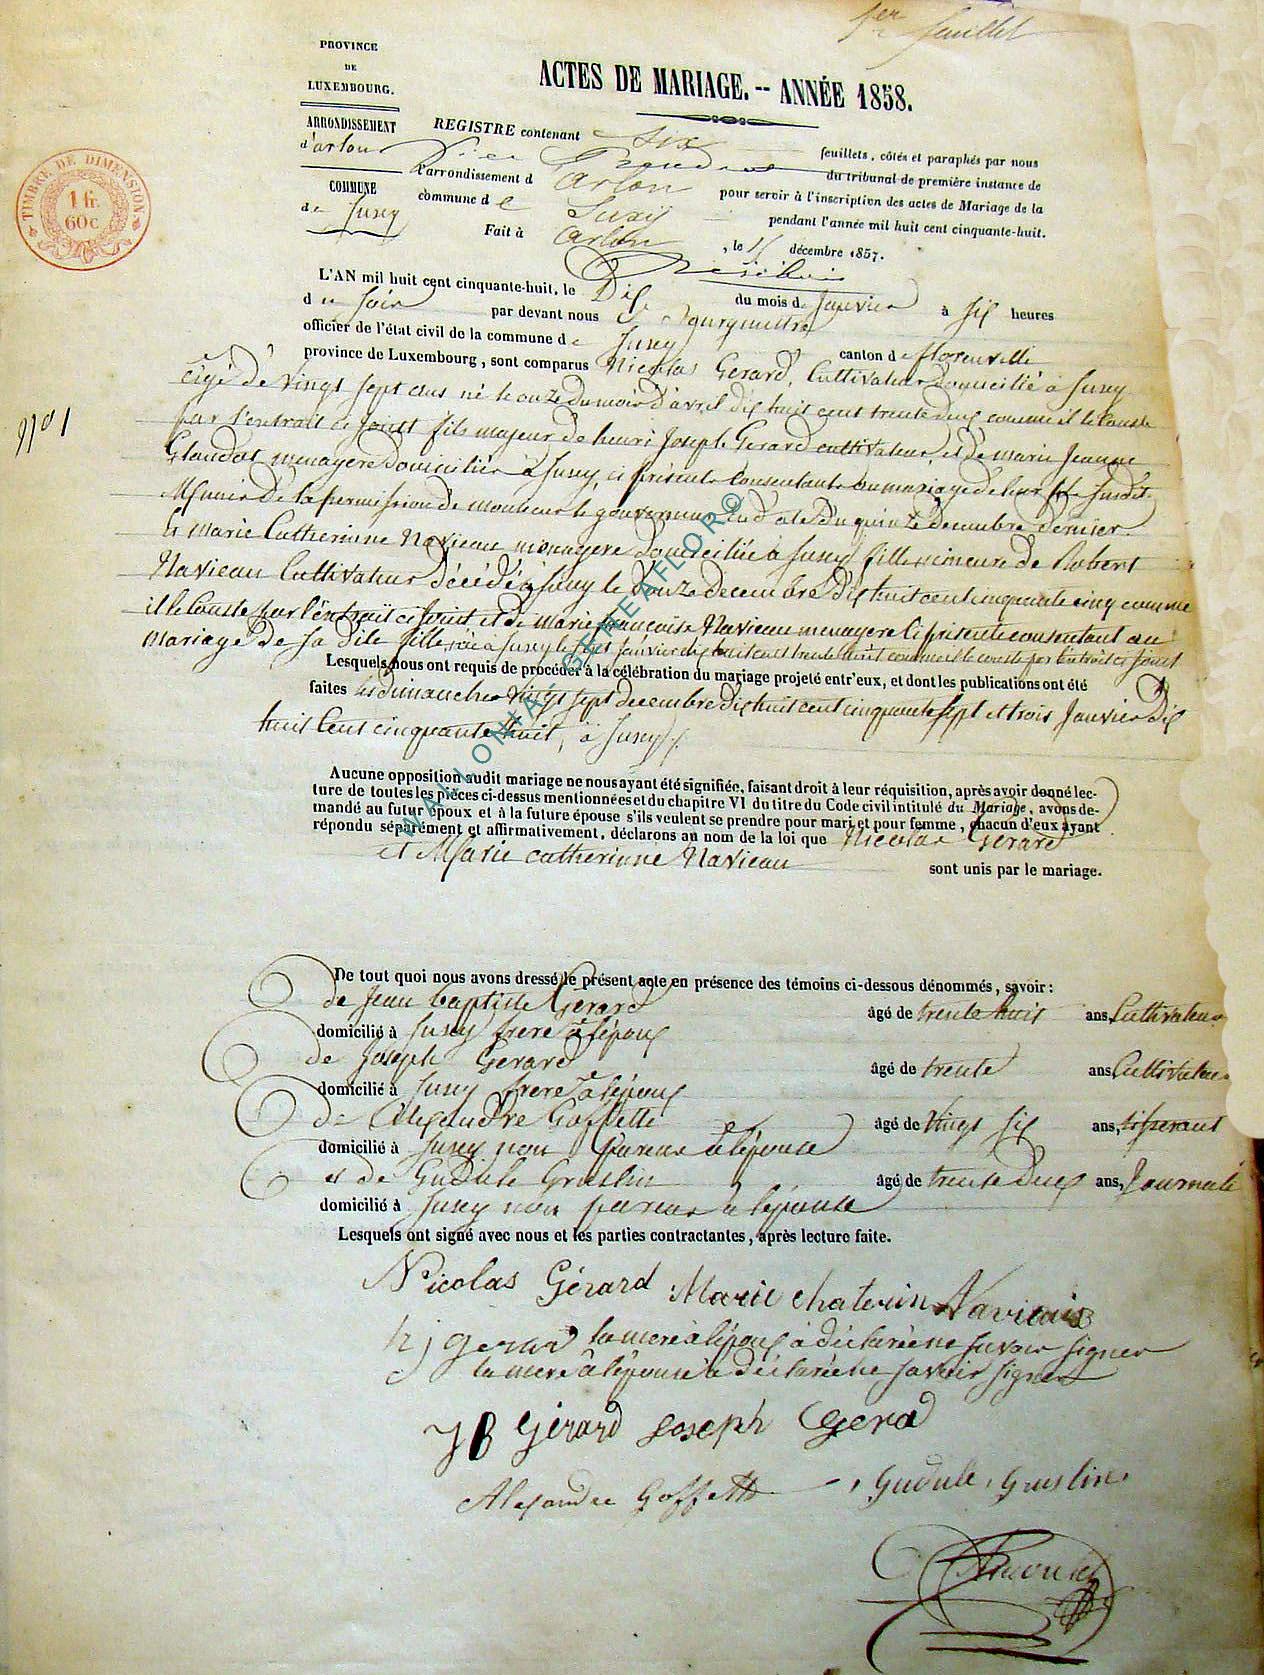 1er feuillet
PROVINCE
DE
LUXEMBOURG.
ACTES DE MARIAGE. -- ANNÉE 1858.
ARRONDISSEMENT
d'arlon
COMMUNE
de Suxy
TIMBRE DE DIMENSION
1 fr.
60 c
REGISTRE contenant six feuillets, côtés et paraphés par nous
Vice President du tribunal de première instance de
l'arrondissement d Arlon pour servir à l'inscription des actes de Mariage de la
commune de Suxy pendant l'année mil huit cent cinquante-huit.
Fait à Arlon, le 15 décembre 1857.
L'AN mil huit cent cinquante-huit, le Dix du mois de Janvier à six heures
du soir par devant nous Bourgmestre
officier de l'état civil de la commune de Suxy canton de florenville
province de Luxembourg, sont comparus Nicolas Gerard, Cultivateur domicilié à Suxy
agé de vingt sept ans né le onze du mois d'avril dix huit cent trente deux comme il le conste
par l'extrait ci joint fils majeur de henri Joseph Gerard cultivateur, et de marie Jeanne
Glaudot menagere domiciliés à Suxy, ci présents consentants au mariage de leur fils susdit.
Munis de la permission de monsieur le gouverneur en date du quinze decembre dernier.
Et marie Catherinne Navieau menagere domiciliée à Suxy fille mineure de Robert
Navieau Cultivateur décédé à Suxy le douze decembre dix huit cent cinquante cinq comme
il le conste par l'éxtrait ci joint et de marie francoise Navieau menagere ci présente consentant au
mariage de sa dite fille, née à Suxy le six janvier dix huit cent trente huit comme il le conste par l'extrait ci joint
N° 1
Lesquels nous ont requis de procéder à la célébration du mariage projeté entr'eux, et dont les publications ont été
faites les dimanches vingt sept decembre dix huit cent cinquante sept et trois Janvier dix
huit Cent cinquante huit, à Suxy
Aucune opposition audit mariage ne nous ayant été signifiée, faisant droit à leur réquisition, après avoir donné lec-
ture de toutes les pièces ci-dessus mentionnées et du chapitre VI du titre du Code civil intitulé du Mariage, avons de-
mandé au futur époux et à la future épouse s'ils veulent se prendre pour mari et pour femme, chacun d'eux ayant
répondu séparément et affirmativement, déclarons au nom de la loi que Nicolas Gerard
et Marie catherinne Navieau sont unis par le mariage.
De tout quoi nous avons dressé le présent acte en présence des témoins ci-dessous dénommés, savoir:
de Jean baptiste Gerard âgé de trente huit ans, Cultivateur
domicilié à Suxy frere à lépoux
de Joseph Gerard âgé de trente ans, Cultivateur
domicilié à Suxy frere à lépoux
de Alexandre Goffette âgé de vingt six ans, tisserant
domicilié à Suxy non parent à lépouse
et de Gudule Gruslin âgé de trente deux ans, Journalé
domicilié à Suxy non parent à lépouse
Lesquels ont signé avec nous et les parties contractantes, après lecture faite.
Nicolas Gérard Marie Chaterin Navieaus
h j gerard la mere à lépoux à déclaré ne savoir signer
la mere à lépouse à déclaré ne savoir signer
JB Gérard Joseph Gerad
Alexandre Goffette Gudule Gruslin
WALLONIA - GENEAFLOR©